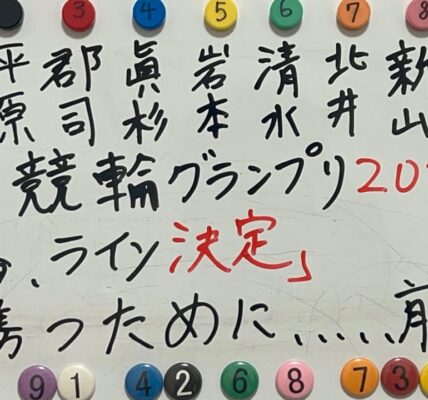 3 4 5 6 7 8
平原
郡司
眞杉
岩本
清水
北井
新山
競輪グランプリ20
、ライン決定」
勝つために.....前
9 1 4 2 6 8 7 3